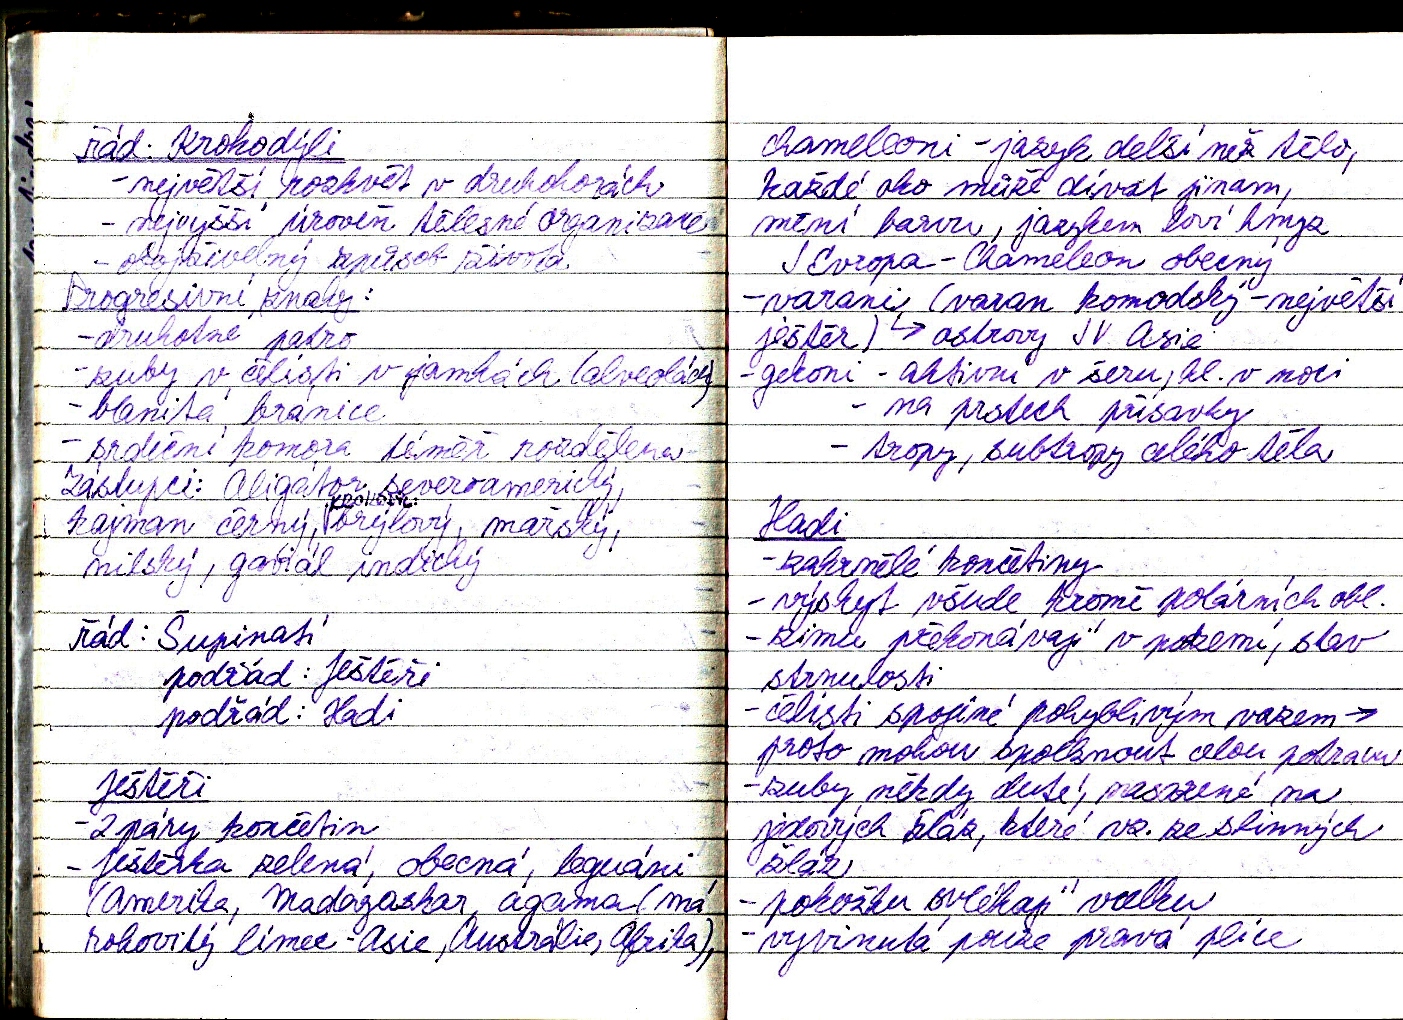 řád: Krokodýli
- největší rozkvět v druhohorách
- nejvyšší úroveň tělesné organizace
- obojživelný způsob života
Progresivní znaky:
- druhotné patro
- zuby v čelisti v jamkách (alveolách)
- blanitá bránice
- srdeční komora téměř rozdělena
Zástupci: Aligátor severoamerický,
krokodýl:
kajman černý, brýlový, mořský,
nilský, gaviál indický
řád: Šupinatí
podřád: Ještěři
podřád: Hadi
Ještěři
- 2 páry končetin
- Ještěrka zelená, obecná, leguáni
(Amerika, Madagaskar, agama (má
rohovitý límec - Asie, Austrálie, Afrika),
chameleoni - jazyk delší než tělo,
každé oko může dívat jinam,
mění barvu, jazykem loví hmyz
J Evropa - Chameleon obecný
- varani (varan komodský - největší
ještěr) ↳ ostrovy JV Asie
- gekoni - aktivní v šeru, hl. v noci
- na prstech přísavky
- tropy, subtropy celého těla
Hadi
- zakrnělé končetiny
- výskyt všude kromě polárních obl.
- zimu překonávají v podzemí, stav
strnulosti
- čelisti spojené pohyblivým vazem →
proto mohou spolknout celou potravu
- zuby někdy duté, nasazené na
jedových žláz, které vz. ze slinných
žláz
- pokožku svlékají vcelku
- vyvinutá pouze pravá plíce